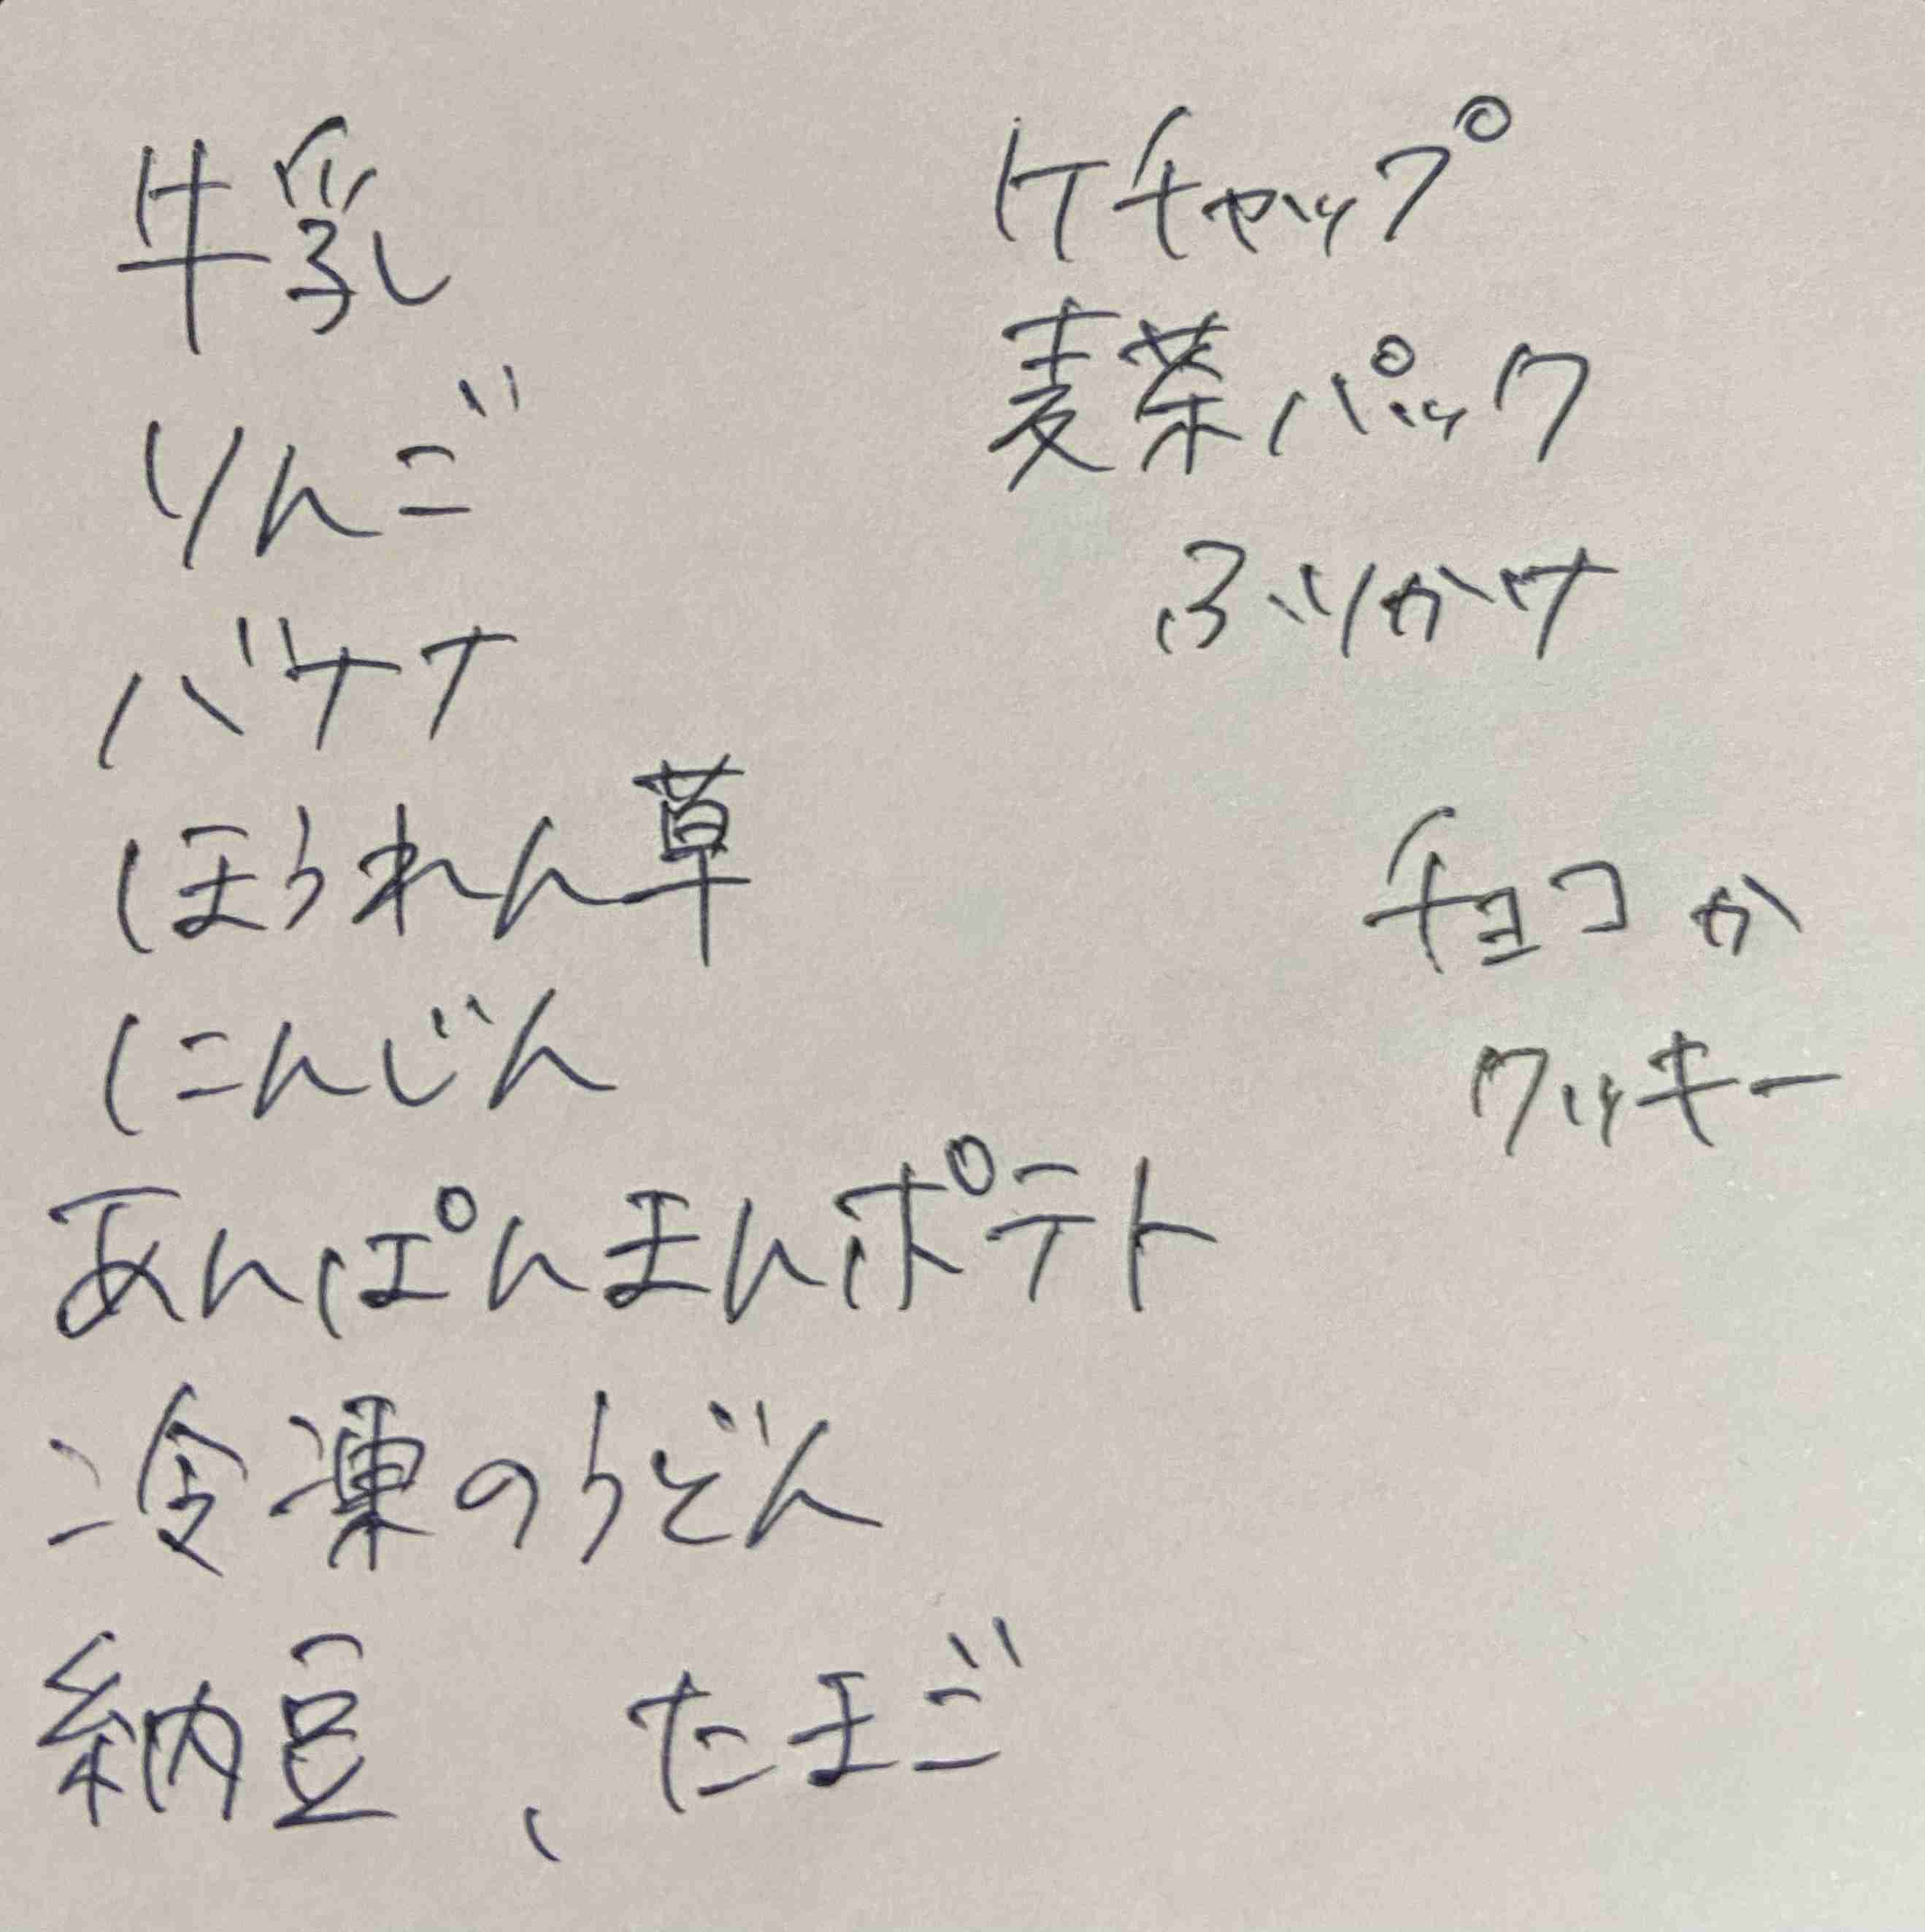 牛乳
りんご
バナナ
ほうれん草
にんじん
あんぱんまんポテト
冷凍のうどん
納豆、たまご
ケチャップ
麦茶パック
ふりかけ
チョコか
クッキー